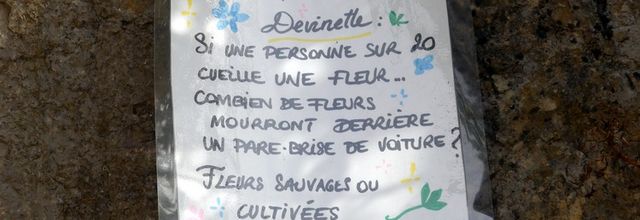 Devinette :
SI UNE PERSONNE SUR 20
CUEILLE UNE FLEUR...
COMBIEN DE FLEURS
MOURRONT DERRIÈRE
UN PARE-BRISE DE VOITURE ?
FLEURS SAUVAGES OU
CULTIVÉES